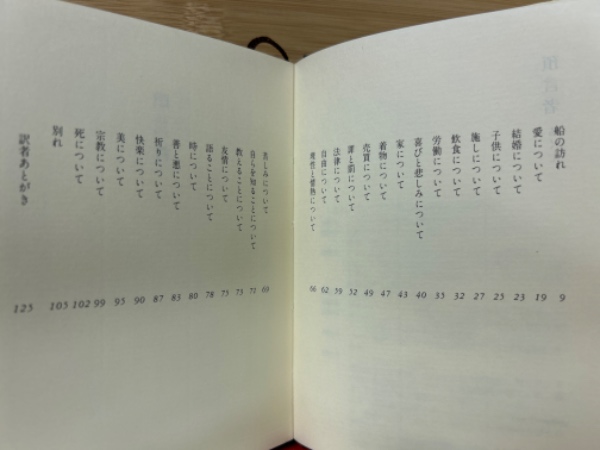 船の訪れ 9
愛について 19
結婚について 23
子供について 25
施しについて 27
飲食について 32
労働について 35
喜びと悲しみについて 40
家について 43
着物について 47
売買について 49
罪と罰について 52
法律について 59
自由について 62
理性と情熱について 66
苦しみについて 69
自らを知ることについて 71
教えることについて 73
友情について 75
語ることについて 78
時について 80
善と悪について 83
祈りについて 87
快楽について 90
美について 95
宗教について 99
死について 102
別れ 105
訳者あとがき 125